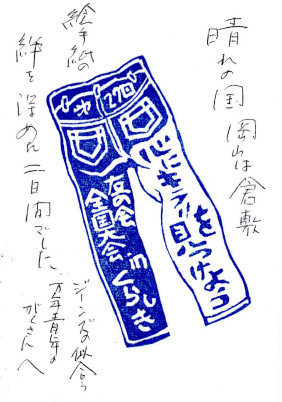 晴れの国 岡山は倉敷
心にキラリ見つけようを
友の会
全国大会 in くらしき
270
絵手紙の
絆を深めた二日間でした
ジーンズの似合う
万年青年の
がくさんへ